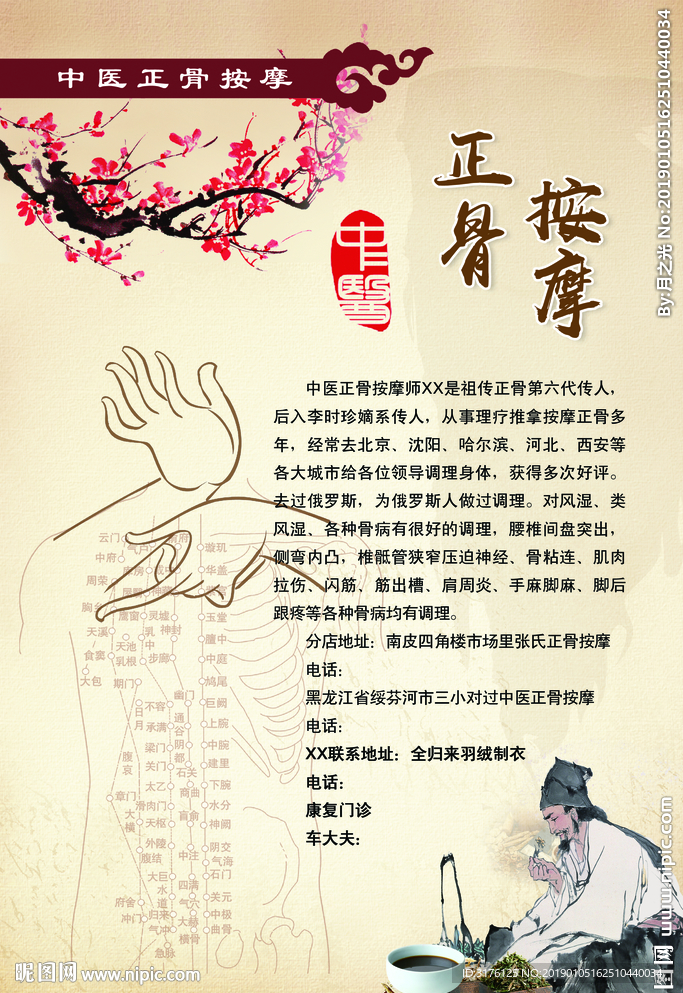 中医正骨按摩
正骨
按摩
中醫
中医正骨按摩师XX是祖传正骨第六代传人，
后入李时珍嫡系传人，从事理疗推拿按摩正骨多
年，经常去北京、沈阳、哈尔滨、河北、西安等
各大城市给各位领导调理身体，获得多次好评。
去过俄罗斯，为俄罗斯人做过调理。对风湿、类
风湿、各种骨病有很好的调理，腰椎间盘突出，
侧弯内凸，椎骶管狭窄压迫神经、骨粘连、肌肉
拉伤、闪筋、筋出槽、肩周炎、手麻脚麻、脚后
跟疼等各种骨病均有调理。
分店地址：南皮四角楼市场里张氏正骨按摩
电话：
黑龙江省绥芬河市三小对过中医正骨按摩
电话：
XX联系地址：全归来羽绒制衣
电话：
康复门诊
车大夫：
云门
气户
璇玑
中府
华盖
周荣
胸乡
膺窗
灵墟
玉堂
天溪
乳中
神封
膻中
天池
食窦
乳根
步廊
中庭
大包
期门
鸠尾
幽门
日月
不容
巨阙
通谷
承满
上脘
梁门
阴都
中脘
腹哀
关门
建里
石关
太乙
商曲
下脘
章门
滑肉门
水分
大横
天枢
肓俞
神阙
外陵
阴交
腹结
中注
气海
石门
大巨
四满
水道
气穴
关元
府舍
归来
大赫
中极
冲门
气冲
横骨
曲骨
急脉
By:月之光 No:20190105162510440034
www.nipic.com
昵图网 www.nipic.com
ID:3176129 NO:20190105162510440034
昵图网